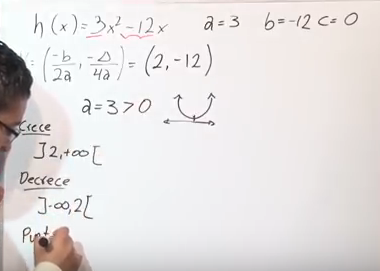 h(x)=3x²-12x a=3 b=-12 c=0
(-b/2a, -Δ/4a) = (2,-12)
a=3>0
Crece
]2,+∞[
Decrece
]-∞,2[
Punt